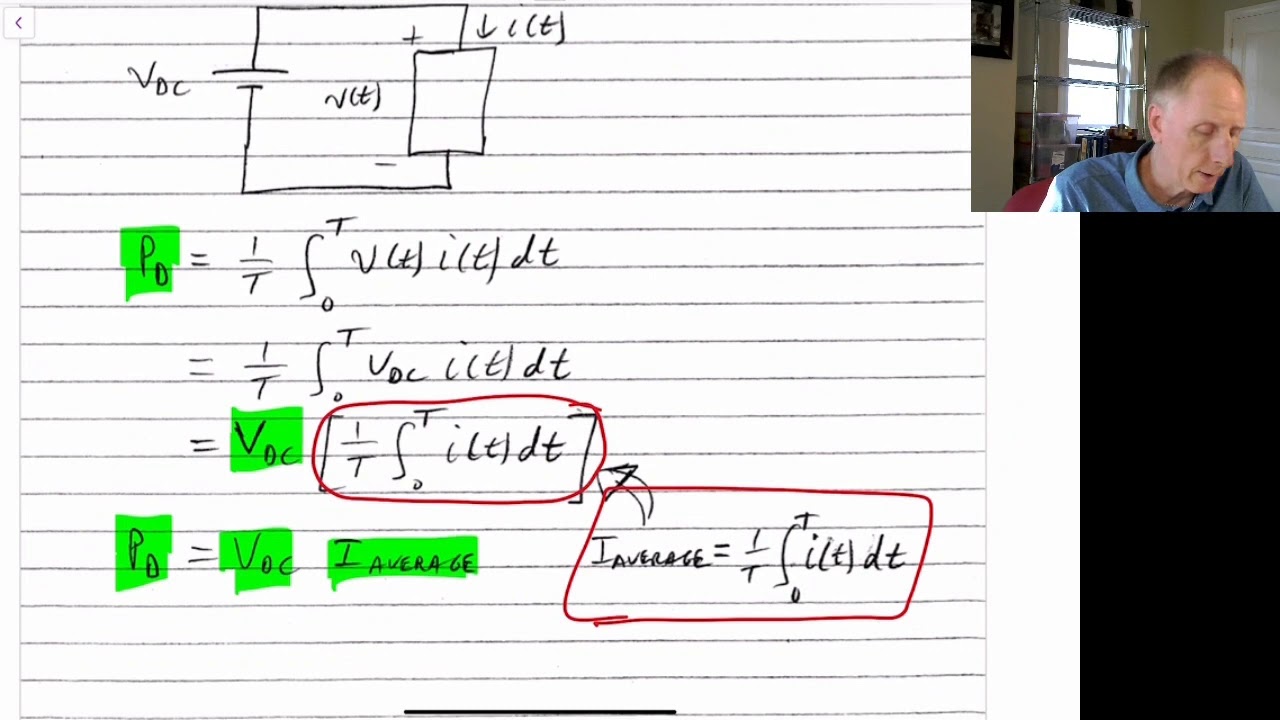 + ↓ i(t)
V_DC v(t)
−
P_D = 1/T ∫₀ᵀ v(t) i(t) dt
= 1/T ∫₀ᵀ V_DC i(t) dt
= V_DC [1/T ∫₀ᵀ i(t) dt]
P_D = V_DC I_AVERAGE
I_AVERAGE = 1/T ∫₀ᵀ i(t) dt